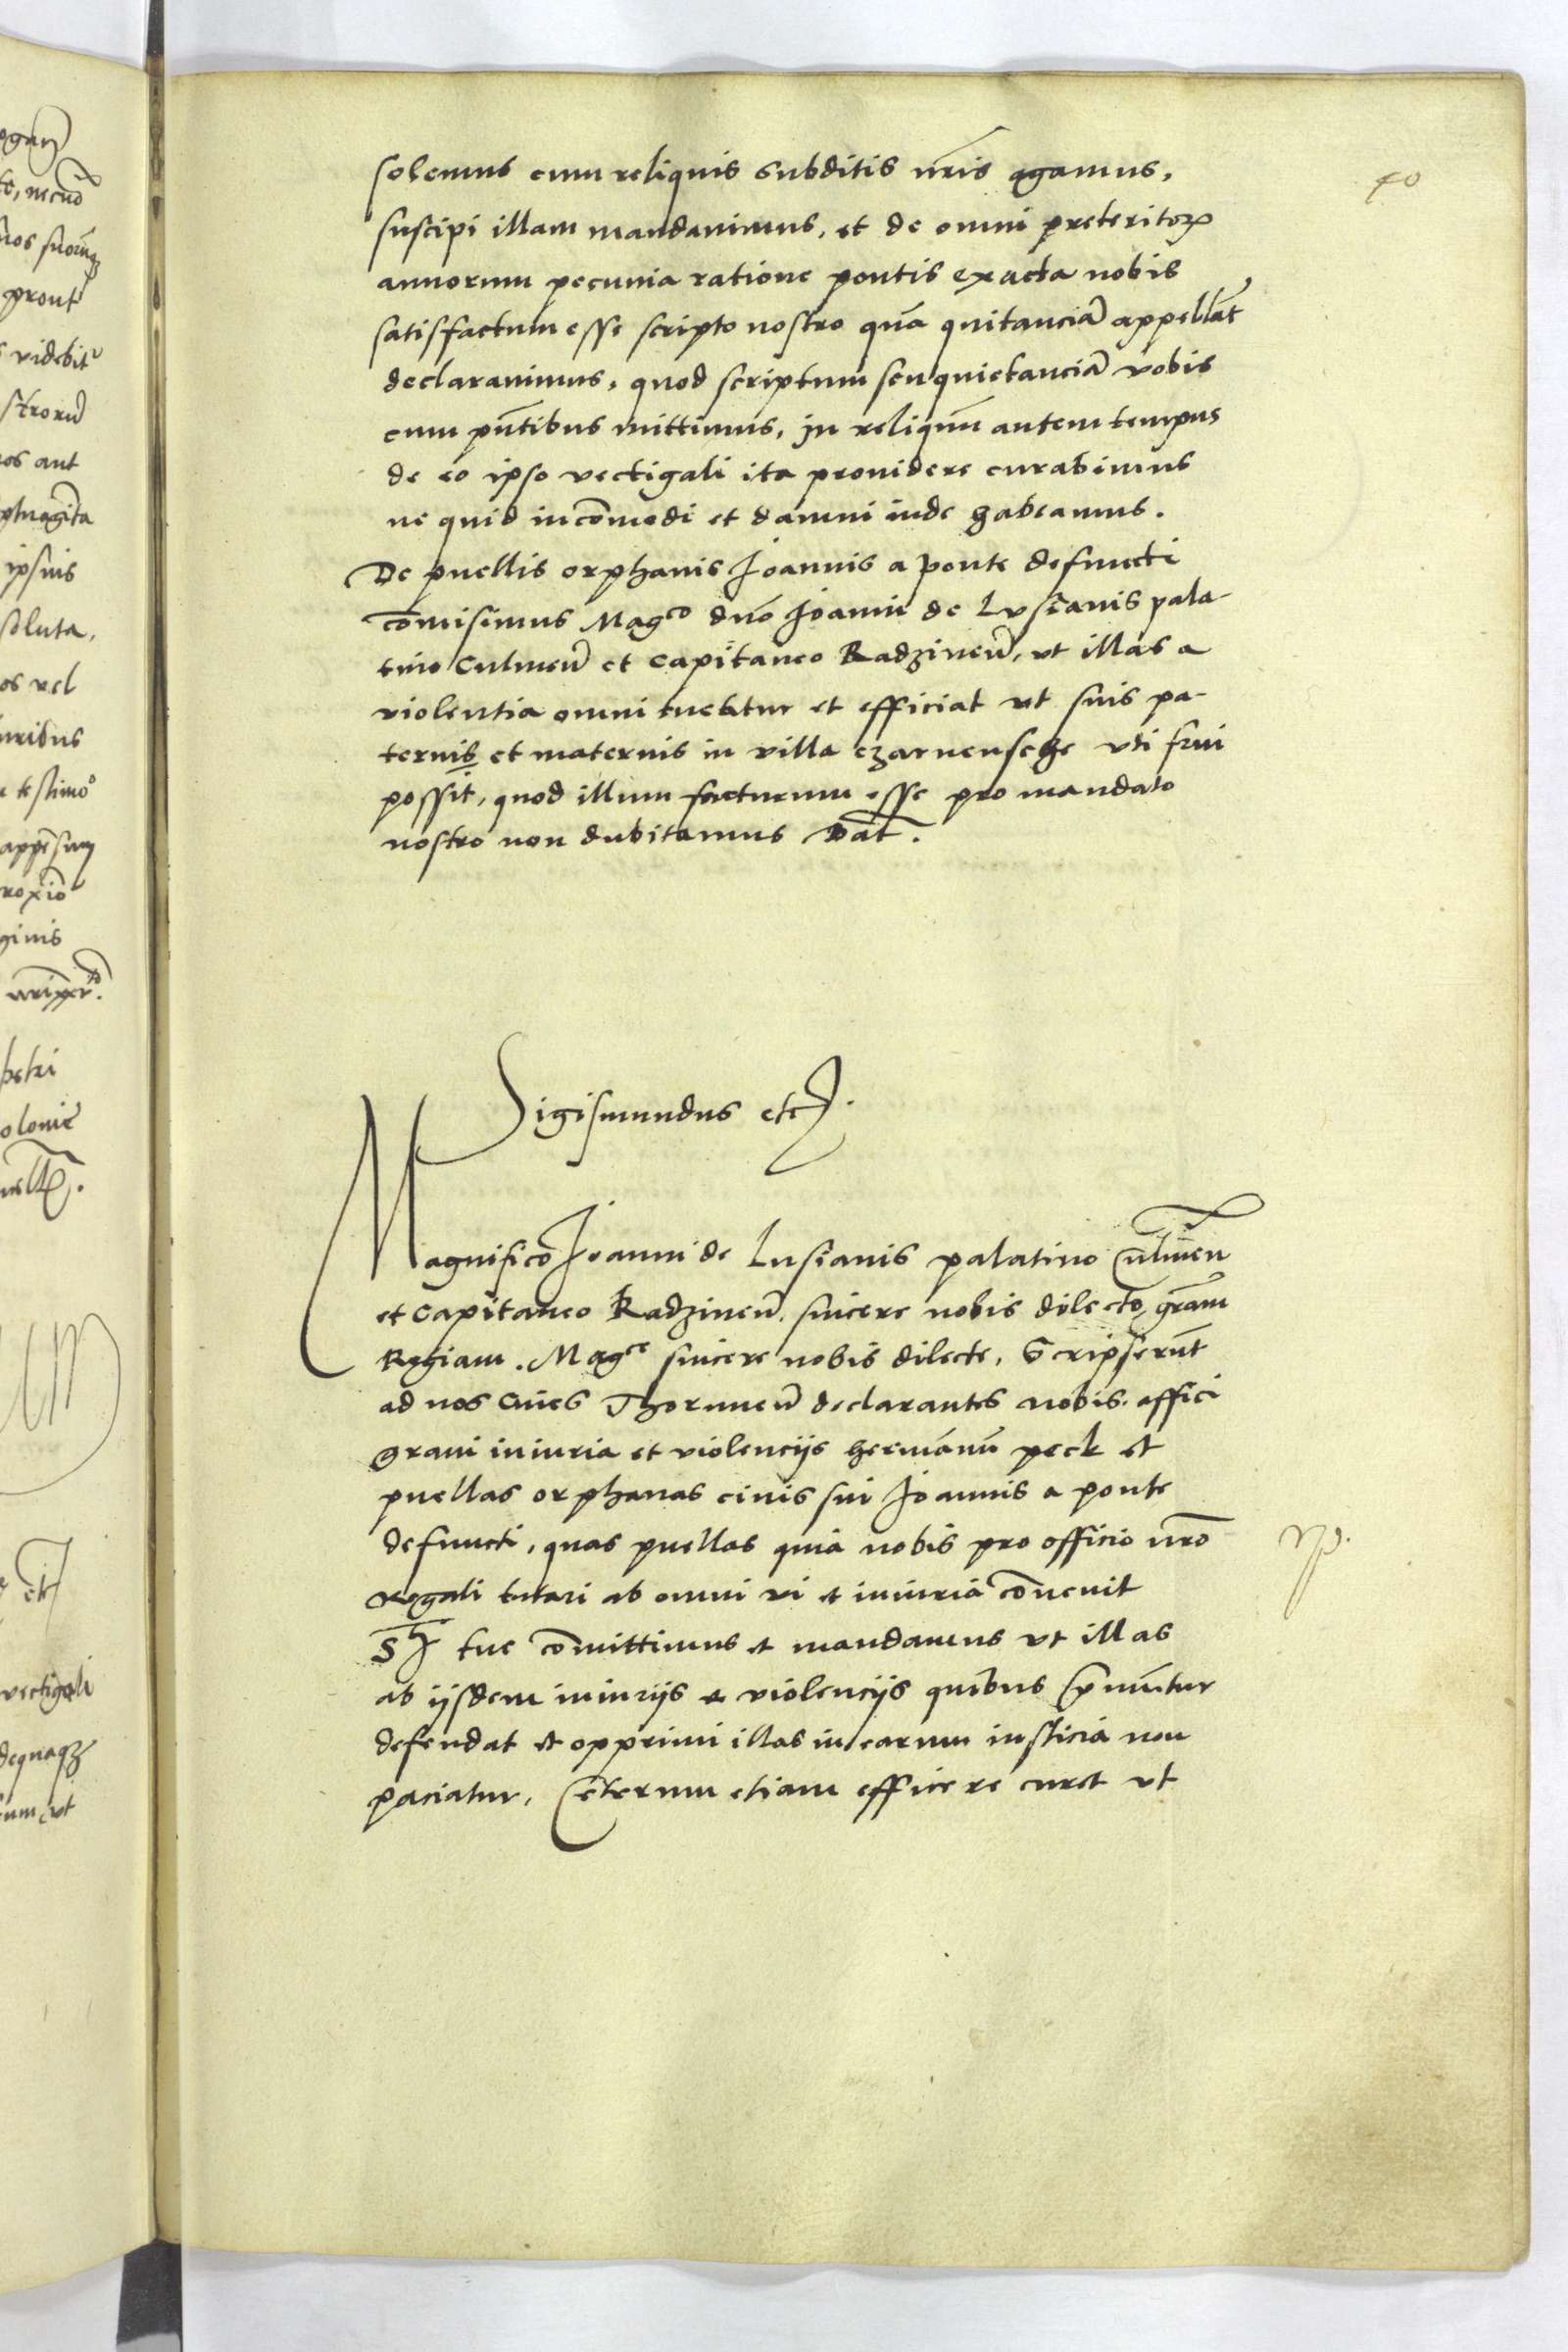 40
solemus cum reliquis subditis nr̃is agamus,
suscipi illam mandauimus, et de omni preteritoꝝ
annorum pecunia ratione pontis exacta nobis
satisfactum esse scripto nostro quã quitanciã appellãt
declarauimus, quod scriptum seu quietanciã vobis
cum pñtibus mittimus, in reliquũ autem tempus
de eo ipso vectigali ita prouidere curabimus
ne quid incõmodi et damni inde habeamus.
De puellis orphanis Joannis a ponte defuncti
cõmisimus Magco dño Joanni de Lusianis pala-
tino Culmeñ et Capitaneo Radzineñ, vt illas a
violentia omni tueatur et efficiat vt suis pa-
ternis et maternis in villa czarnensehe vti frui
possit, quod illum facturum esse pro mandato
nostro non dubitamus Dat̃.
Sigismundus etc.
Magnifico Joanni de Lusianis palatino Culmeñ
et Capitaneo Radzineñ. sincere nobis dilecto, gr̃am
Regiam. Magce sincere nobis dilecte, Scripserũt
ad nos Ciues Thoruneñ declarantes nobis. affici
graui iniuria et violencijs hermãnũ peck et
puellas orphanas ciuis sui Joannis a ponte
defuncti, quas puellas quia nobis pro officio nr̃o
regali tutari ab omni vi et iniuria cõuenit
S tue cõmittimus et mandamus vt illas
ab ijsdem iniurijs et violencijs quibus p̃mũtur
defendat et opprimi illas in earum iusticia non
paciatur, Ceterum etiam efficere curet vt